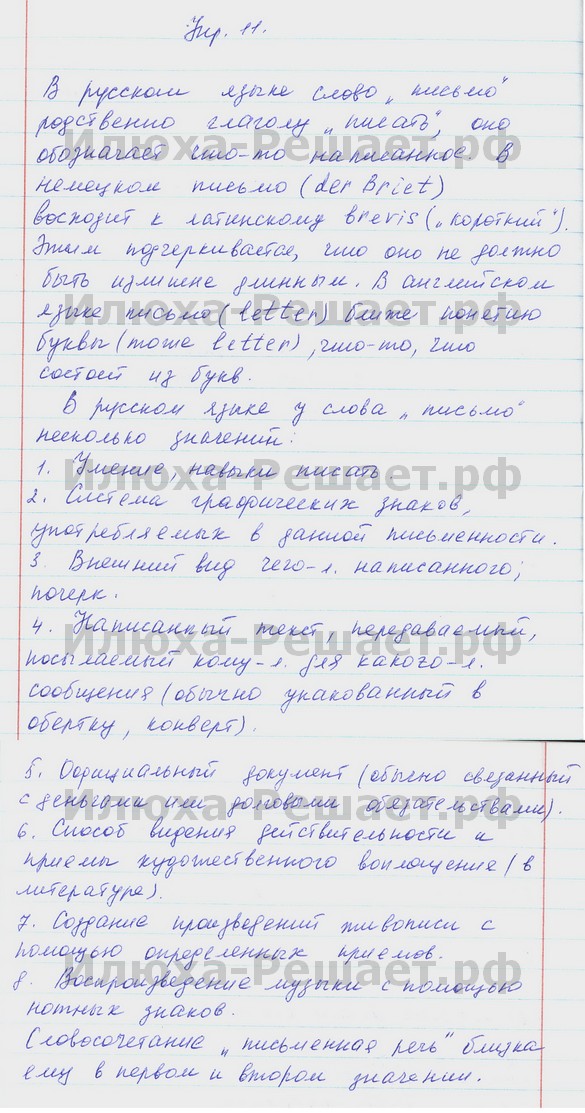 Упр. 11.
В русском языке слово „письмо"
родственно глаголу „писать", оно
обозначает что-то написанное. В
немецком письмо (der Brief)
восходит к латинскому brevis („короткий").
Этим подчеркивается, что оно не должно
быть излишне длинным. В английском
языке письмо (letter) ближе понятию
буквы (тоже letter), что-то, что
состоит из букв.
В русском языке у слова „письмо"
несколько значений:
1. Умение, навыки писать.
2. Система графических знаков,
употребляемых в данной письменности.
3. Внешний вид чего-л. написанного;
почерк.
4. Написанный текст, передаваемый,
посылаемый кому-л. для какого-л.
сообщения (обычно упакованный в
обертку, конверт).
5. Официальный документ (обычно связанный
с деньгами или долговыми обязательствами).
6. Способ видения действительности и
приемы художественного воплощения (в
литературе).
7. Создание произведений живописи с
помощью определенных приемов.
8. Воспроизведение музыки с помощью
нотных знаков.
Словосочетание „письменная речь" близка
ему в первом и втором значении.
Илюха-Решает.рф
Илюха-Решает.рф
Илюха-Решает.рф
Илюха-Решает.рф
Илюха-Решает.рф
Илюха-Решает.рф